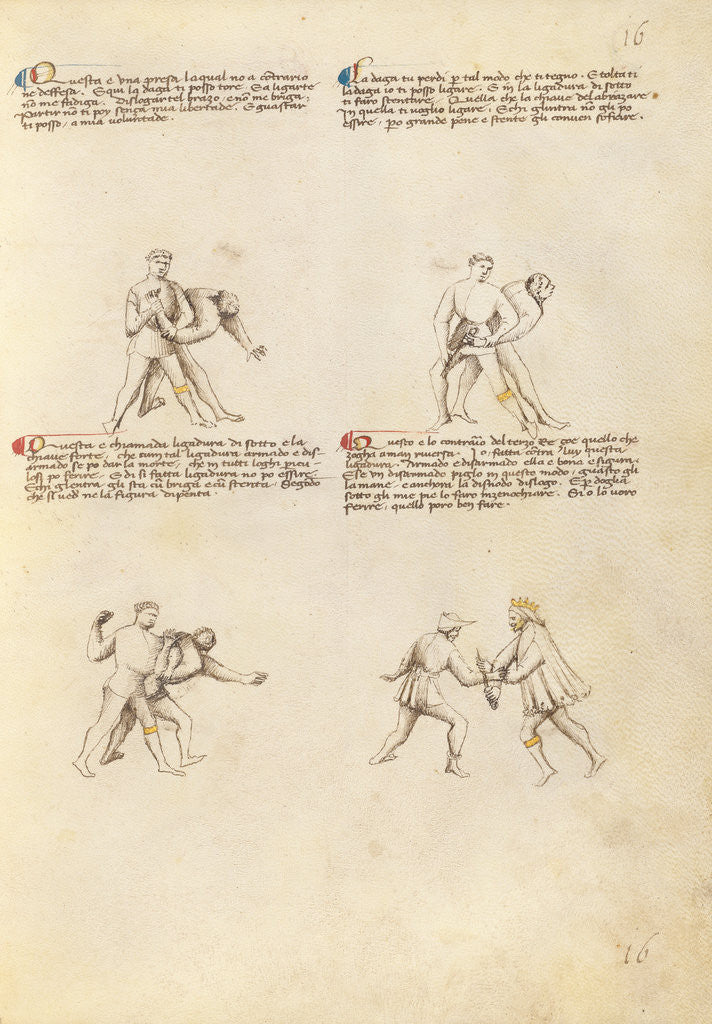 16
Questa e una presa la qual no a contrario
ne deffesa. E qui la daga ti posso tore. E a ligarte
no me fadiga. Dislogar tel brazo, e no me briga,
Partir no ti poy senza mia libertade. E guastar
ti posso, a mia voluntade.
La daga tu perdi p tal modo che ti tegno. E tolta ti
la daga io ti posso ligare. E in la ligadura di sotto
ti faro stentare, Quella che la chiave del abrazare
In quella ti voglio ligare. E chi glintra no gli po
essire, p o grande pene e stente gli conven sofrire.
Questa e chiamada ligadura di sotto e la
chiave forte, che cum tal ligadura armado e dis-
armado se po dar la morte, che in tutti loghi picu-
losi po ferire. E di si fatta ligadura no po essire.
E chi gl entra gli sta cu briga e cu stenta, Segodo
che si ved ne la figura dipenta.
Questo e lo contrario del terzo Re çoe quello che
zogha a man riversa. Io o fatta contra luy questa
ligadura. Armado e disarmado ella e bona e sigura.
E se un disarmado piglo in questo modo, guasto gli
la mane, e anchora la disnodo dislogo. E p doglia
sotto gli mie pie lo faro inzenochiare. E si o lo voro
ferire, quello poro ben fare.
16